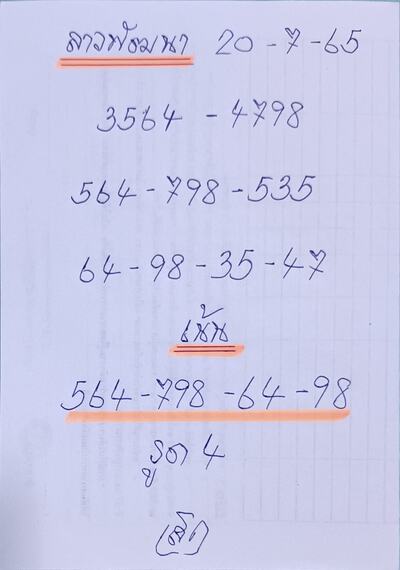 ลาวพัฒนา 20-7-65
3564 - 4798
564 - 798 - 535
64 - 98 - 35 - 47
เน้น
564 - 798 - 64 - 98
รูด 4